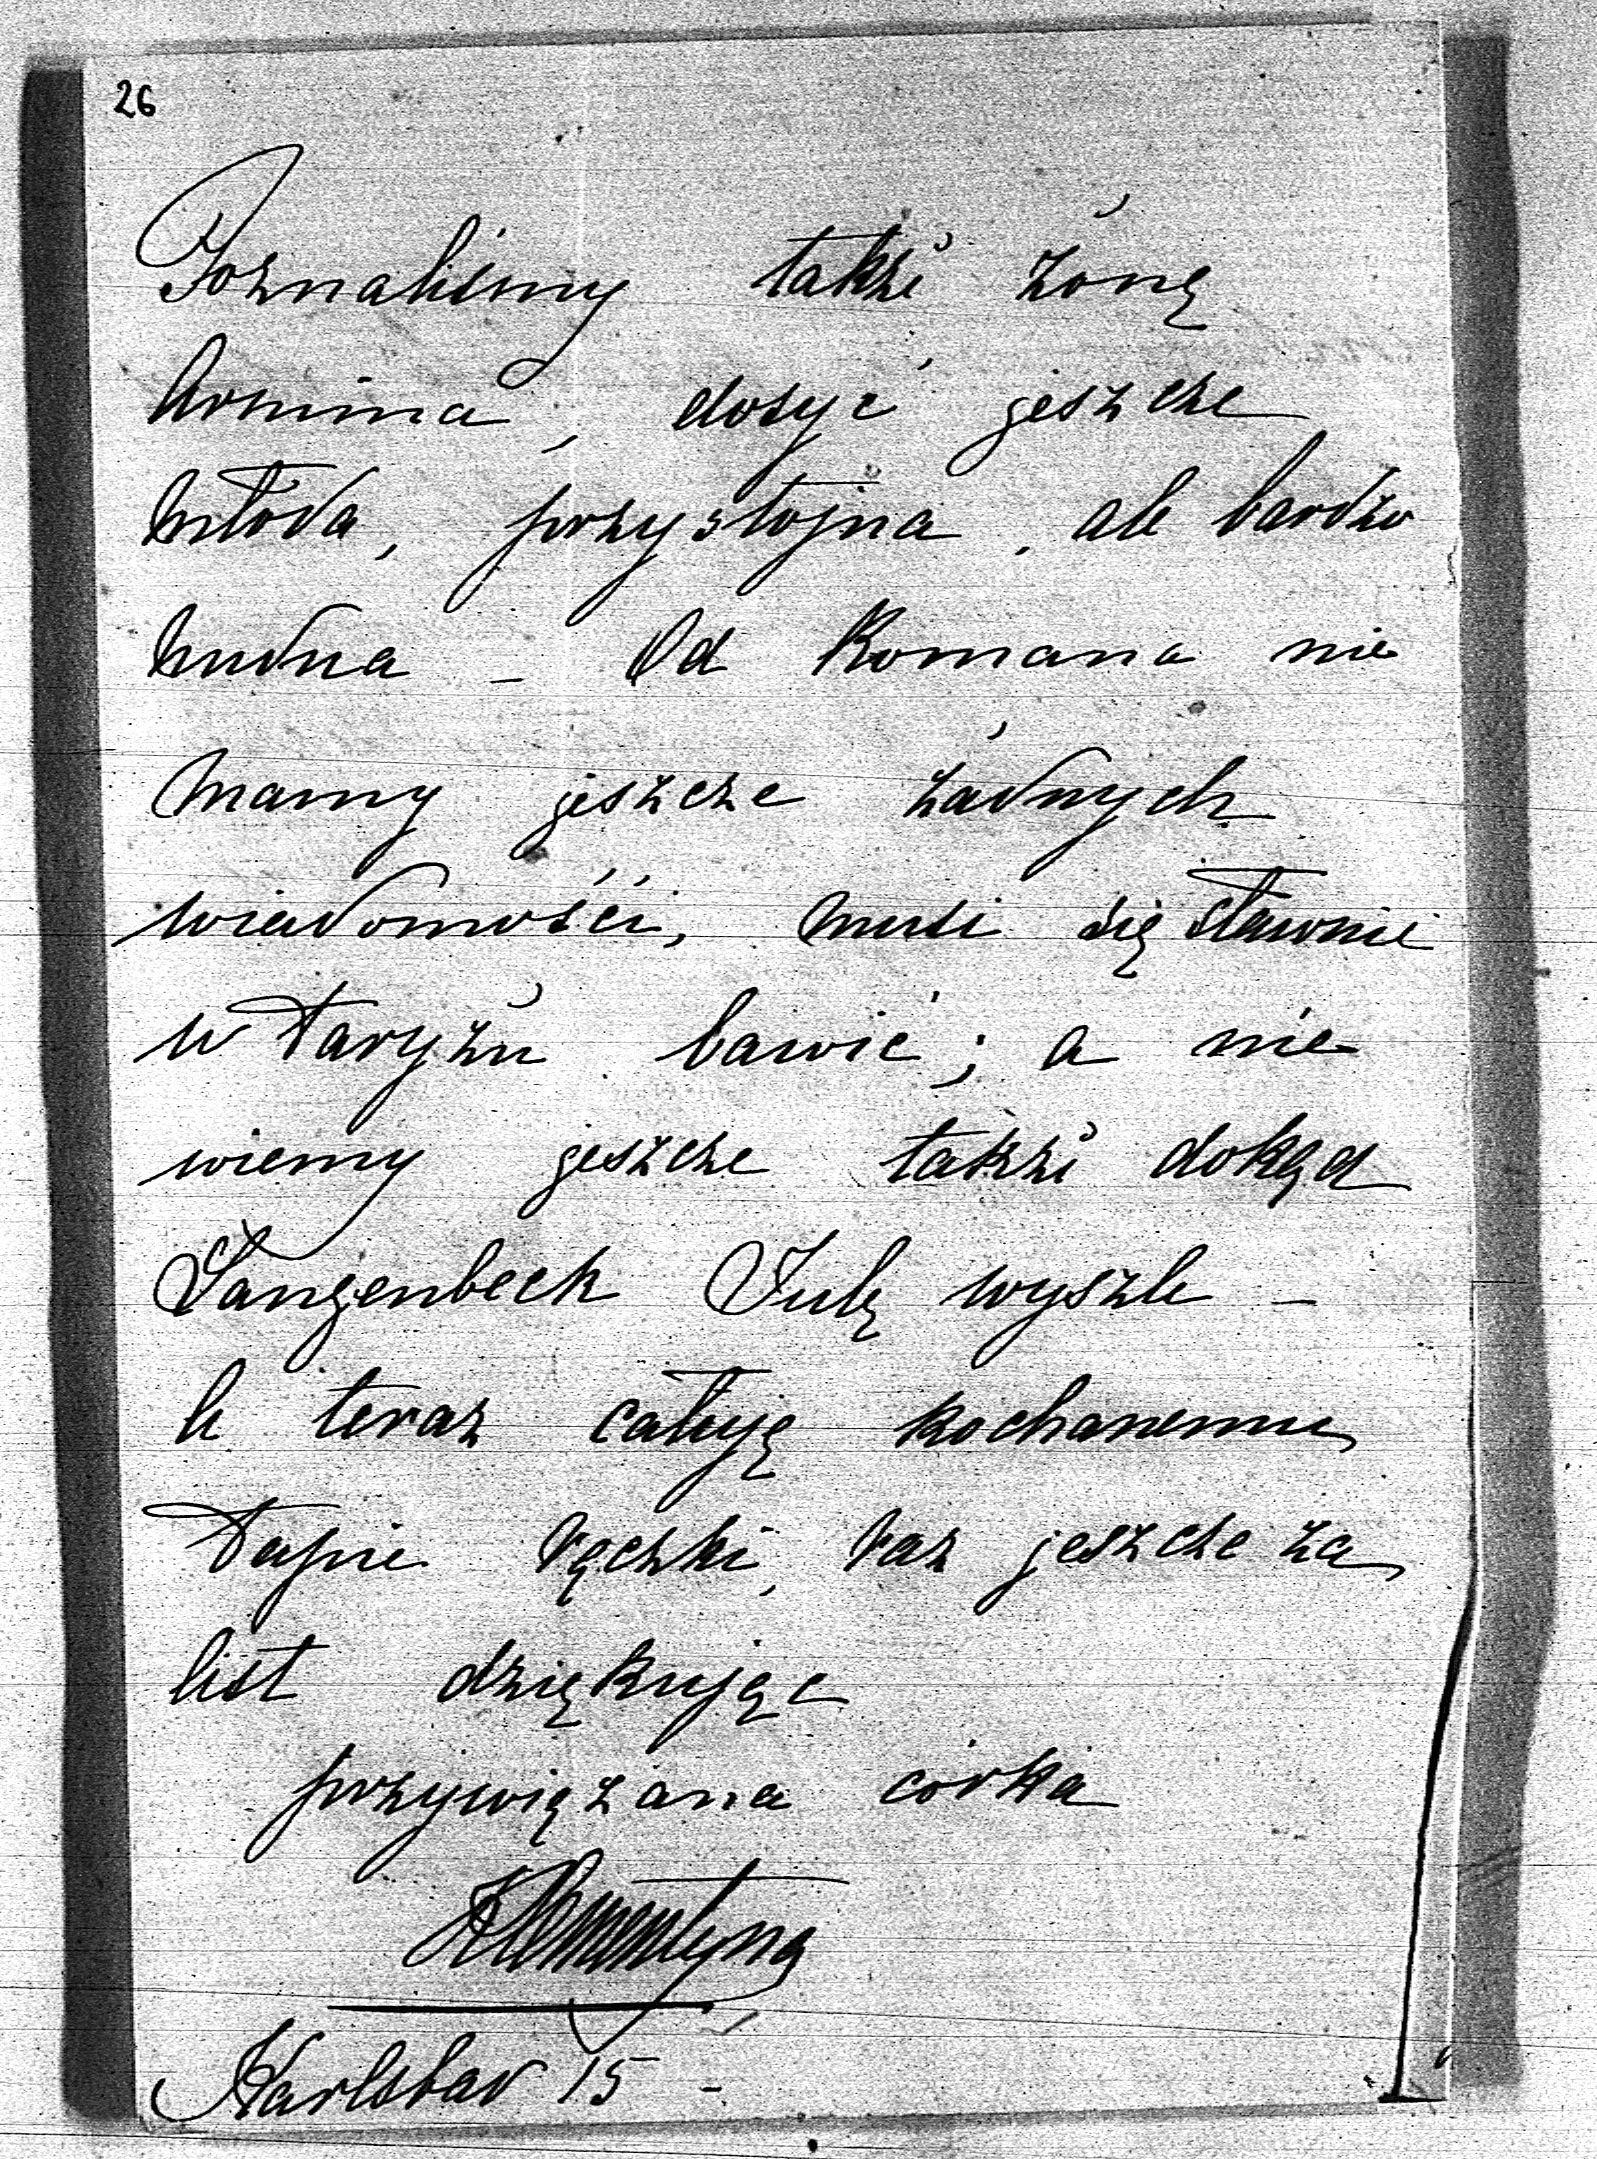 26
Poznaliśmy także żonę
Arnima, dosyć jeszcze
młoda, przystojna, ale bardzo
nudna – Od Romana nie
mamy jeszcze żadnych
wiadomości, musi się sławnie
w Paryżu bawić; a nie
wiemy jeszcze także dokąd
Langenbeck Julę wyszle –
A teraz całuję kochanemu
Papie rączki, raz jeszcze za
list dziękując
przywiązana córka
Klementyna
Karlsbad 15 –